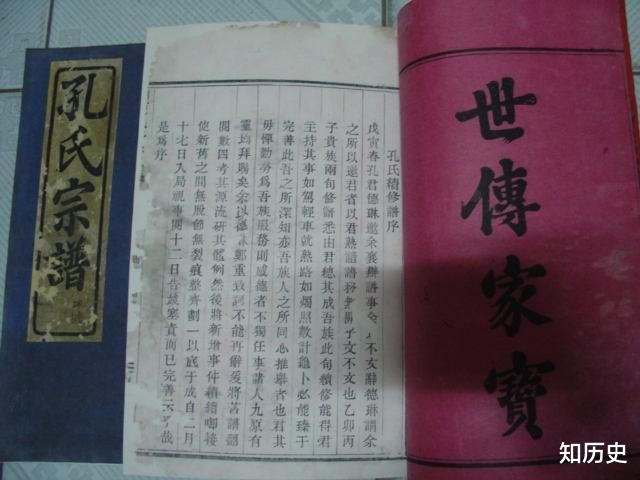 世傳家寶
孔氏續修譜序
戊寅春孔君德琳邀余襄辦譜事余不文辭德琳謂余
之所以邀君者以君熟譜譜務非關子文不文也乙卯丙
子貴族兩旬修譜悉由君總其成吾族此旬續修能得君
主持其事如駕輕車就熟路如燭照數計龜卜必能臻于
完善此吾之所深知亦吾族人之所同心推舉者也君其
毋憚勤勞為吾族服務則感德者不獨任事諸人九原有
靈均拜賜矣余以德琳鄭重致詞不能再辭爰將舊譜
閱數四考其源流研其體例然後將新增事件續續啣接
使新舊之間無股節無裂痕整齊劃一以底于成自二月
十七日入局視事閱十二日告竣塞責而已完善云乎哉
是為序
孔氏宗譜
知历史